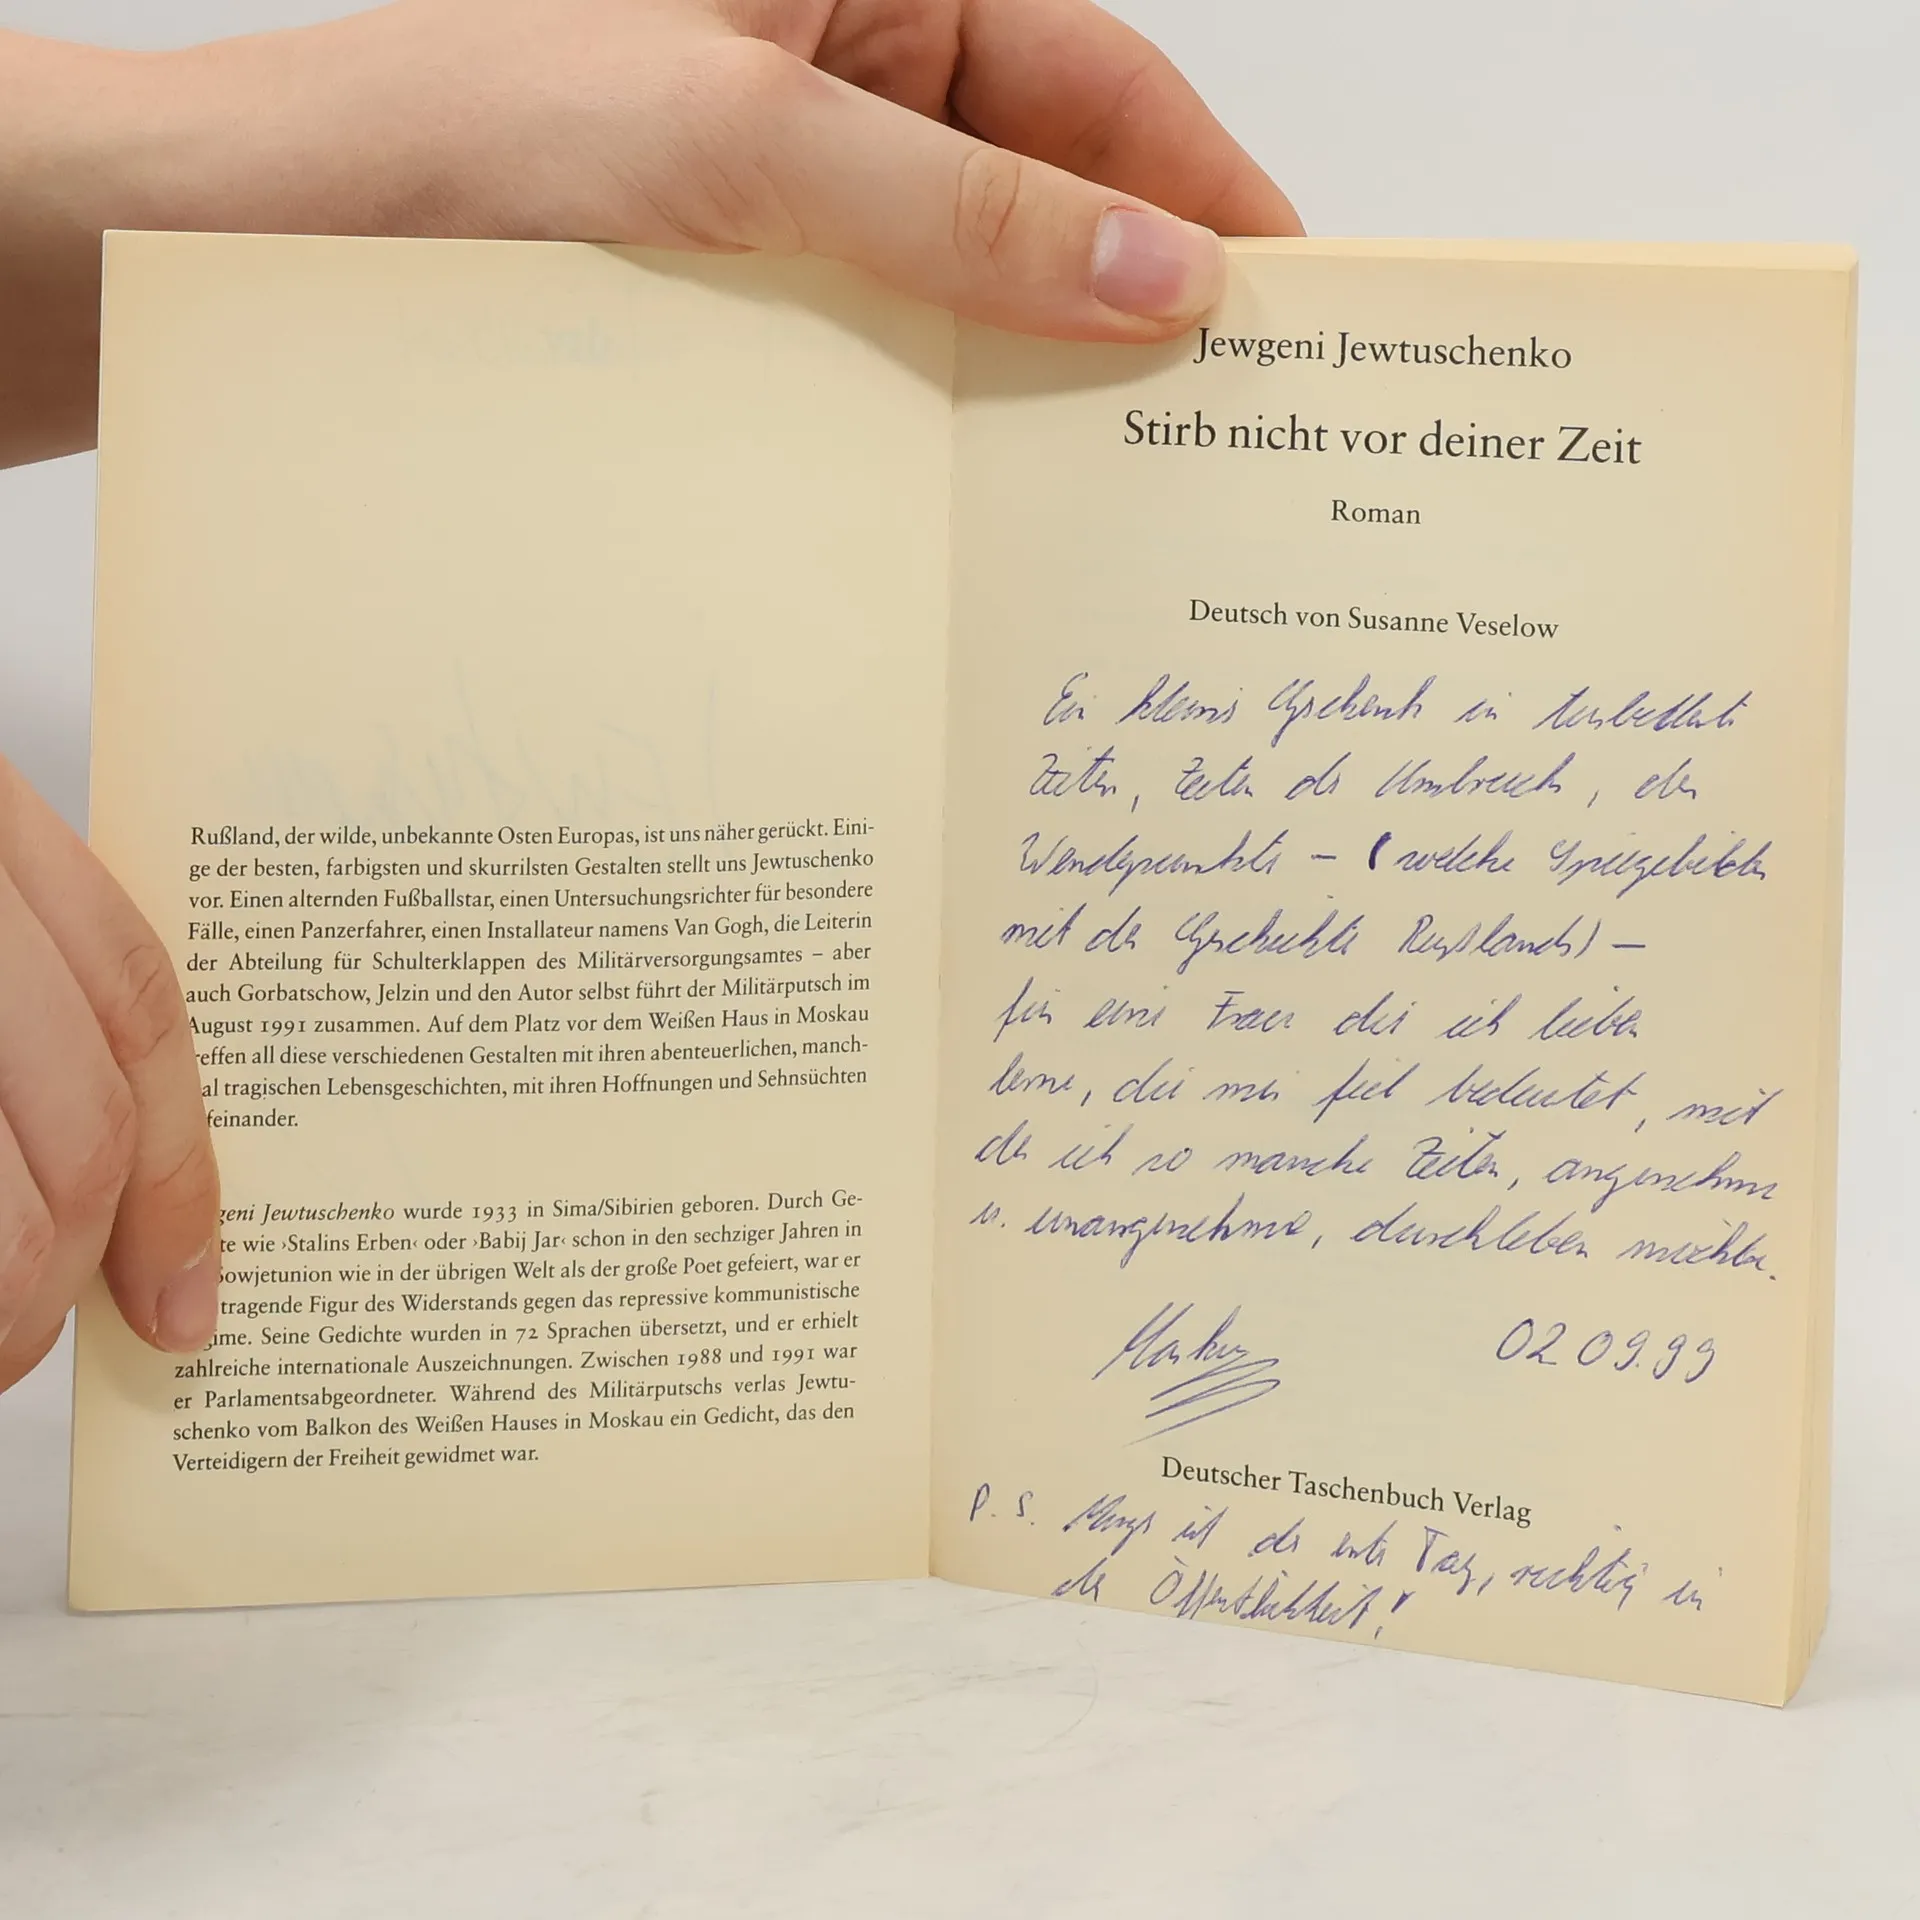 Rußland, der wilde, unbekannte Osten Europas, ist uns näher gerückt. Eini-
ge der besten, farbigsten und skurrilsten Gestalten stellt uns Jewtuschenko
vor. Einen alternden Fußballstar, einen Untersuchungsrichter für besondere
Fälle, einen Panzerfahrer, einen Installateur namens Van Gogh, die Leiterin
der Abteilung für Schulterklappen des Militärversorgungsamtes – aber
auch Gorbatschow, Jelzin und den Autor selbst führt der Militärputsch im
August 1991 zusammen. Auf dem Platz vor dem Weißen Haus in Moskau
reffen all diese verschiedenen Gestalten mit ihren abenteuerlichen, manch-
al tragischen Lebensgeschichten, mit ihren Hoffnungen und Sehnsüchten
feinander.
geni Jewtuschenko wurde 1933 in Sima/Sibirien geboren. Durch Ge-
te wie ›Stalins Erben‹ oder ›Babij Jar‹ schon in den sechziger Jahren in
Sowjetunion wie in der übrigen Welt als der große Poet gefeiert, war er
tragende Figur des Widerstands gegen das repressive kommunistische
gime. Seine Gedichte wurden in 72 Sprachen übersetzt, und er erhielt
zahlreiche internationale Auszeichnungen. Zwischen 1988 und 1991 war
er Parlamentsabgeordneter. Während des Militärputschs verlas Jewtu-
schenko vom Balkon des Weißen Hauses in Moskau ein Gedicht, das den
Verteidigern der Freiheit gewidmet war.
Jewgeni Jewtuschenko
Stirb nicht vor deiner Zeit
Roman
Deutsch von Susanne Veselow
Ein kleines Geschenk in
Zeiten, Zeiten des Umbruchs, der
Wendepunkte – (welche Spiegelbilder
mit der Geschichte Russlands) –
für eine Frau die ich lieben
lerne, die mir fiel bedeutet, mit
der ich so manche Zeiten, angenehme
u. unangenehme, durchleben möchte.
Markus 02 09.99
Deutscher Taschenbuch Verlag
P. S. Morgen ist der erste Tag, richtig in
der Öffentlichkeit!